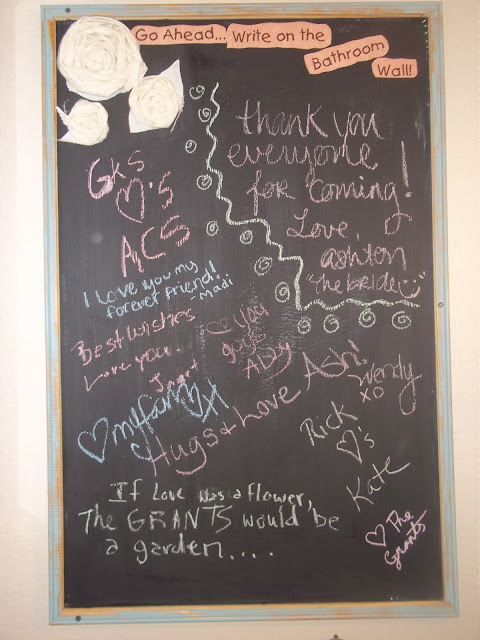 Go Ahead... Write on the
Bathroom
Wall!
thank you
everyone
for coming!
Love,
ashton
"the bride"
GKS
♡'S
ACS
I Love you my
forever friend!
-Madi
Best wishes
Love you.
♡ you
guys
Abby
Ash!
Wendy
xo
♡ my fam
Hugs & Love
Rick
♡'s
Kate
If Love was a flower,
The GRANTS would be
a garden....
♡ The
Grants